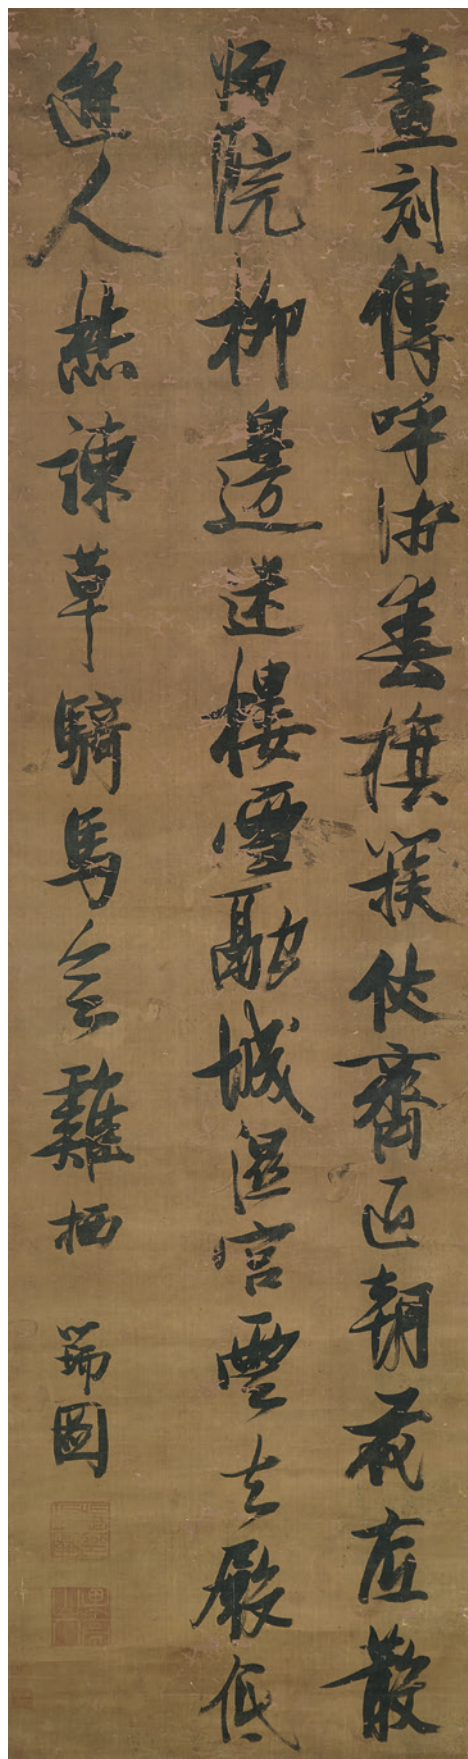 晝刻傳呼淺春旗簇仗齊退朝花底散
歸院柳邊迷樓雪融城濕宮雲去殿低
避人焚諫草騎馬會雞栖 瑞圖